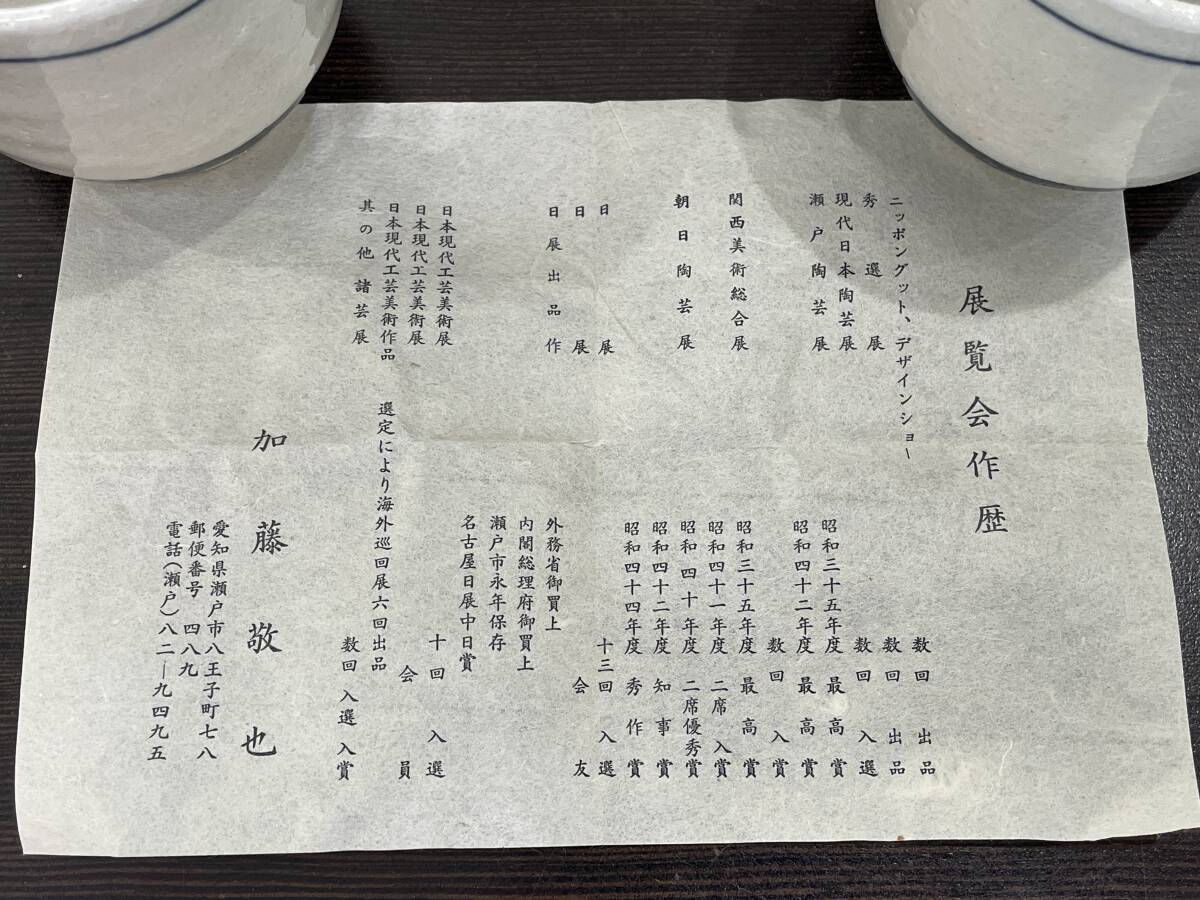 展覧会作歴
ニッポングット、デザインショー 数回出品
秀選展 数回出品
現代日本陶芸展 数回入選
瀬戸陶芸展 昭和三十五年度最高賞
昭和四十二年度最高賞
数回入賞
関西美術総合展 昭和三十五年度最高賞
昭和四十一年度二席入賞
朝日陶芸展 昭和四十年度二席優秀賞
昭和四十二年度知事賞
昭和四十四年度秀作賞
日展 十三回入選
日展 会友
日展出品作 外務省御買上
内閣総理府御買上
瀬戸市永年保存
名古屋日展中日賞
日本現代工芸美術展 十回入選
日本現代工芸美術展 会員
日本現代工芸美術作品 選定により海外巡回展六回出品
其の他諸芸展 数回入選入賞
加藤敬也
愛知県瀬戸市八王子町七八
郵便番号 四八九
電話(瀬戸)八二―九四九五